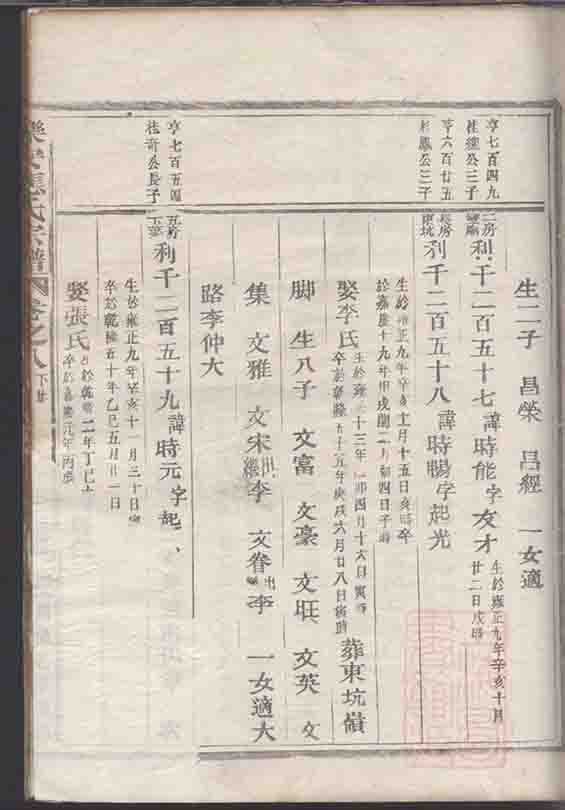 亨七百四九
桂總公三子
亨六百廿五
杉鳳公三子
亨七百五四
桂奇公長子
生二子 昌榮 昌經 一女適
二房
利千二百五十七諱時能字友才
生於雍正九年辛亥十月
廿二日戌時
長房
東坑
利千二百五十八諱時暘字起光
生於雍正九年辛亥十二月十五日亥時卒
於嘉慶十九年甲戌閏二月初四日子時
娶李氏
生於雍正十三年乙卯四月十六日寅時
卒於乾隆五十五年庚戌六月廿八日寅時
葬東坑嶺
脚 生八子 文富 文豪 文旺 文英 文
集 文雅 文宋出繼李 文眷出繼李 一女適大
路李仲大
五房
利千二百五十九諱時元字起
生於雍正九年辛亥十一月三十日
卒於乾隆五十年乙巳五月廿一日
娶張氏
生於乾隆二年丁巳
卒於嘉慶元年丙辰
氏宗譜 卷之八 下廿